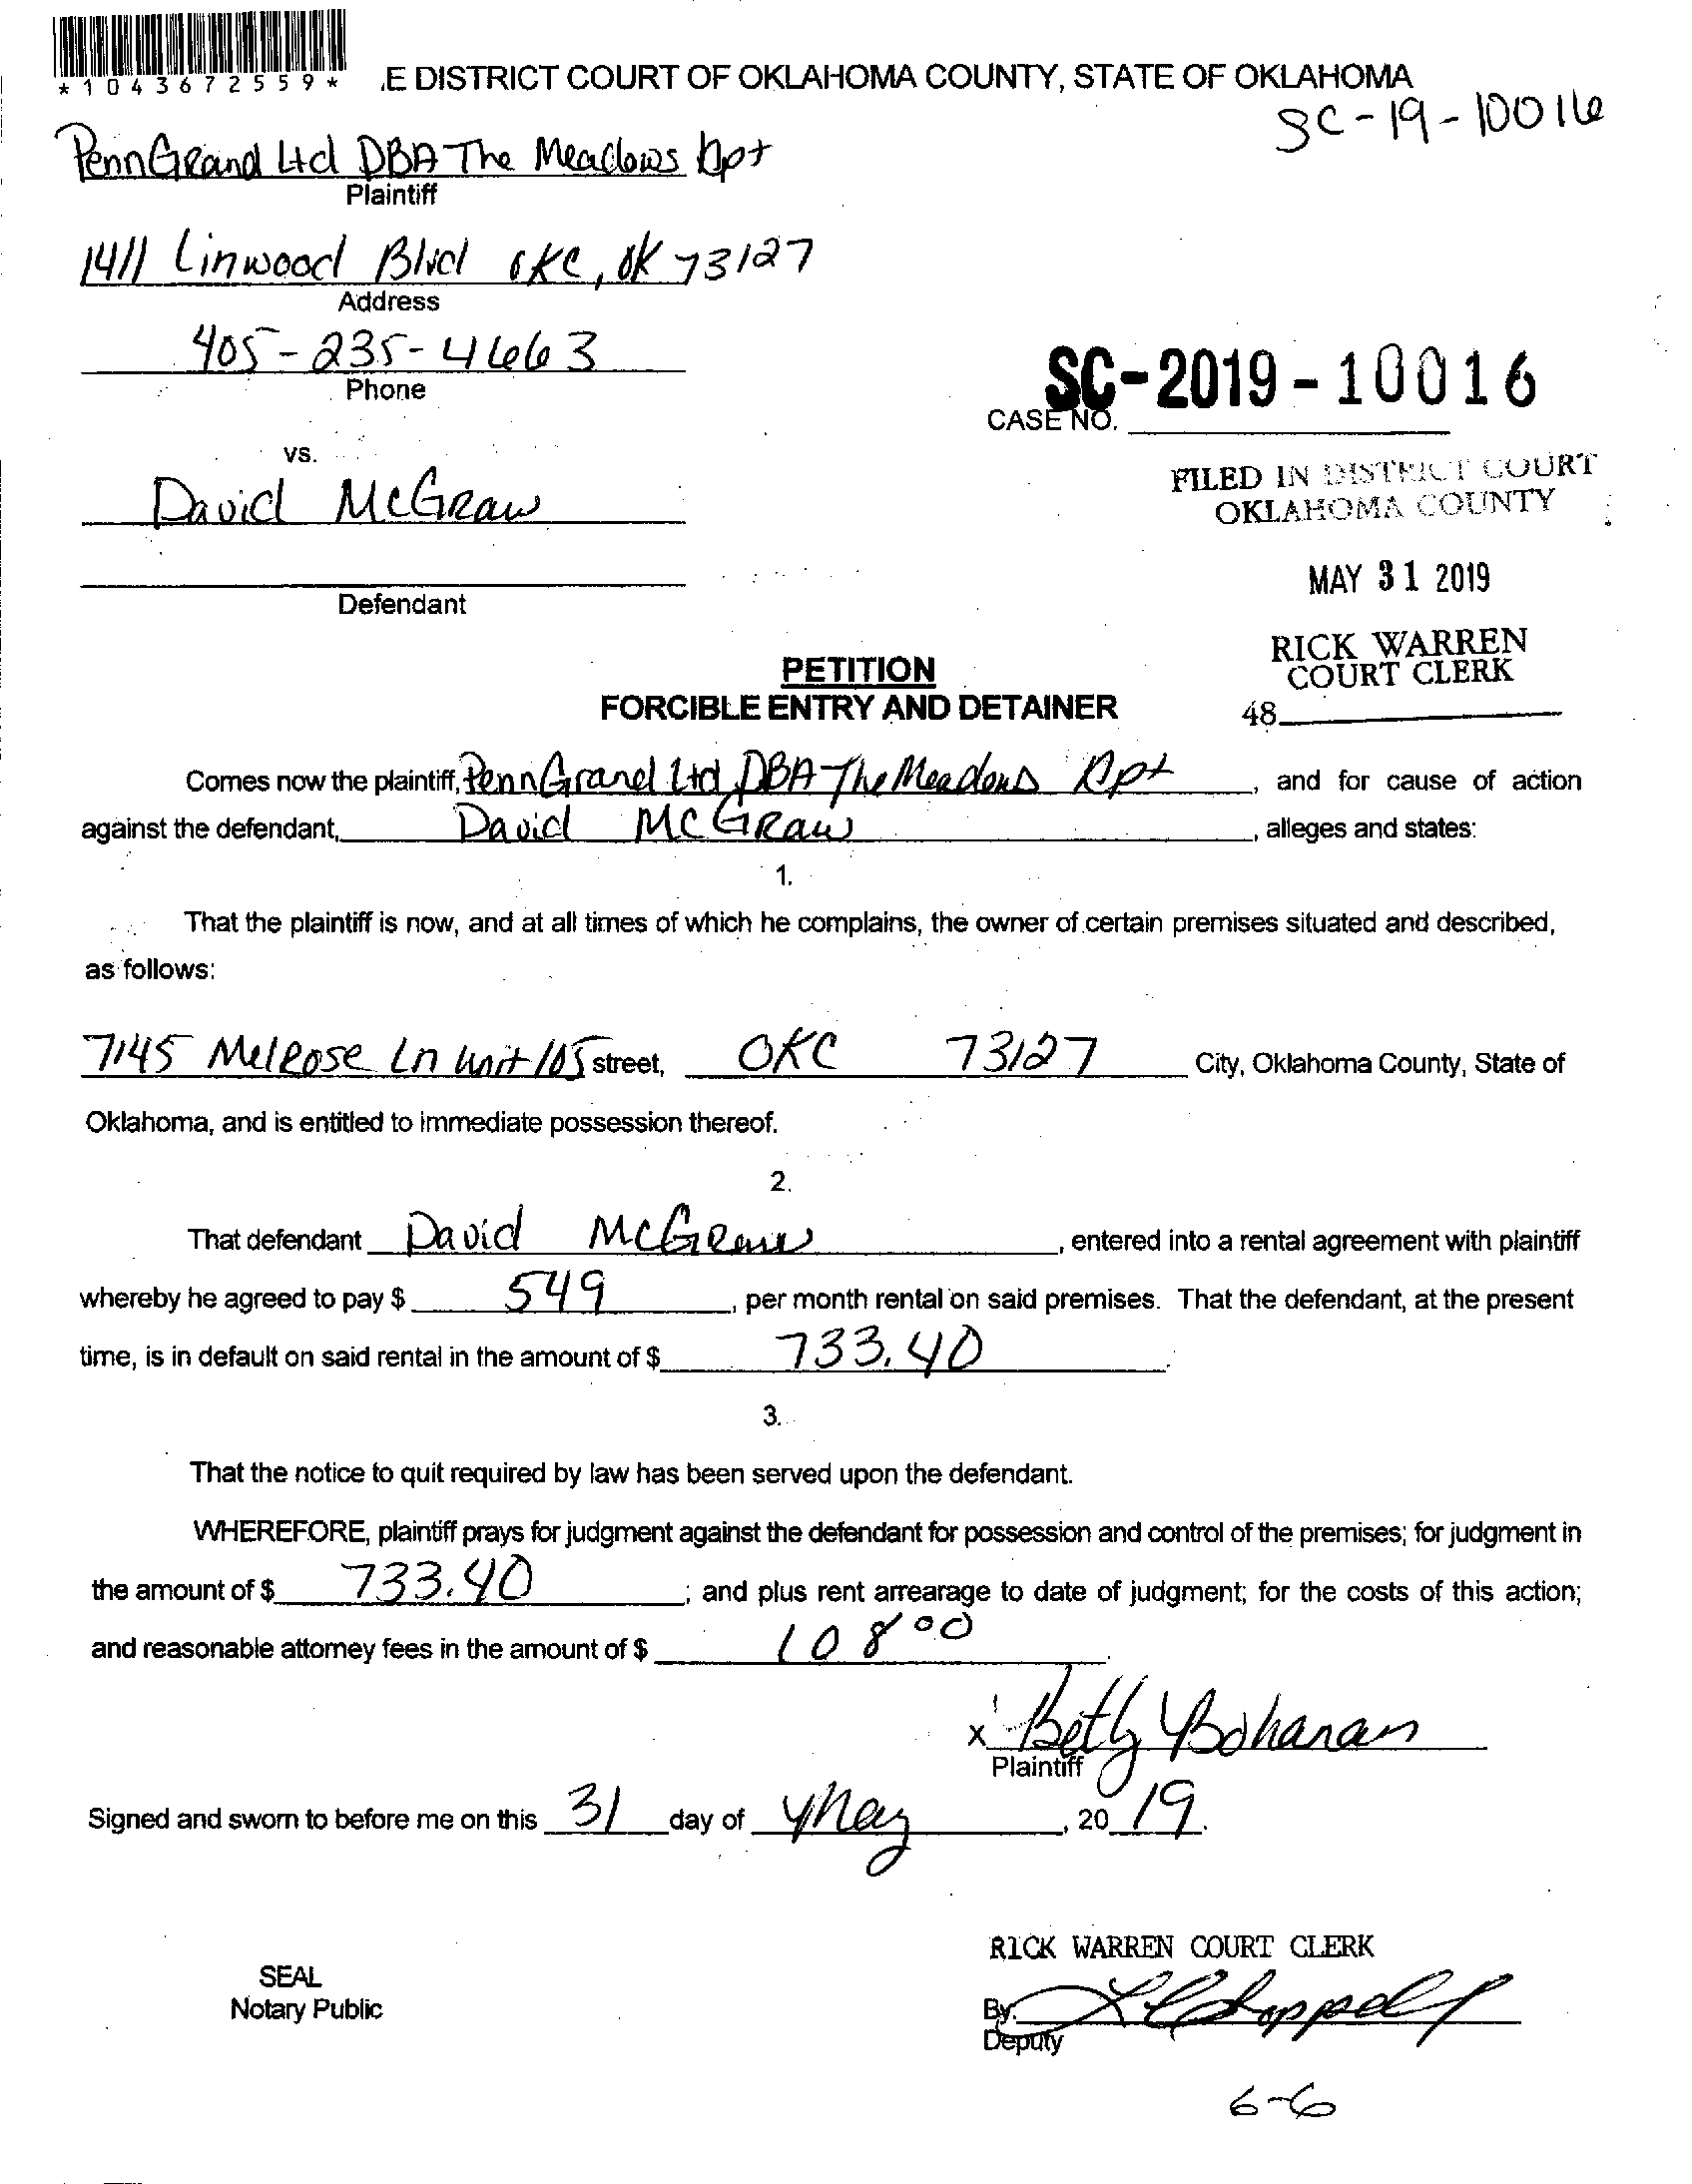 *1043672559*
.E DISTRICT COURT OF OKLAHOMA COUNTY, STATE OF OKLAHOMA
SC-19-10016
PennGrand Ltd DBA The Meadows Apt
Plaintiff
1411 Linwood Blvd OKC, OK 73127
Address
405-235-4663
Phone
SC-2019-10016
CASE NO.
vs.
FILED IN DISTRICT COURT
OKLAHOMA COUNTY
David McGraw
MAY 31 2019
Defendant
RICK WARREN
COURT CLERK
48
PETITION
FORCIBLE ENTRY AND DETAINER
Comes now the plaintiff, PennGrand Ltd DBA The Meadows Apt, and for cause of action
against the defendant, David McGraw, alleges and states:
1.
That the plaintiff is now, and at all times of which he complains, the owner of certain premises situated and described,
as follows:
7145 Melrose Ln unit 105 street, OKC 73127 City, Oklahoma County, State of
Oklahoma, and is entitled to immediate possession thereof.
2.
That defendant David McGraw, entered into a rental agreement with plaintiff
whereby he agreed to pay $ 549, per month rental on said premises. That the defendant, at the present
time, is in default on said rental in the amount of $ 733.40.
3.
That the notice to quit required by law has been served upon the defendant.
WHEREFORE, plaintiff prays for judgment against the defendant for possession and control of the premises; for judgment in
the amount of $ 733.40; and plus rent arrearage to date of judgment; for the costs of this action;
and reasonable attorney fees in the amount of $ 108 00.
x Betty Bohanan
Plaintiff
Signed and sworn to before me on this 31 day of May, 20 19.
RICK WARREN COURT CLERK
SEAL
Notary Public
By.
Deputy
6-6